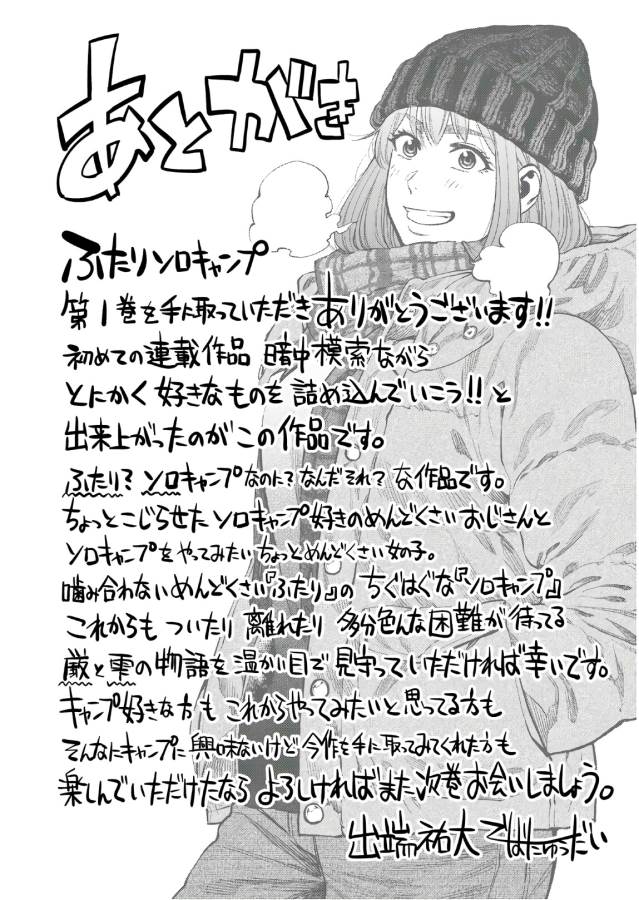 あとがき
ふたりソロキャンプ
第1巻を手に取っていただきありがとうございます!!
初めての連載作品 暗中模索ながら
とにかく好きなものを詰め込んでいこう!!と
出来上がったのがこの作品です。
ふたり?ソロキャンプなのに?なんだそれ?な作品です。
ちょっとこじらせたソロキャンプ好きのめんどくさいおじさんと
ソロキャンプをやってみたいちょっとめんどくさい女の子。
噛み合わないめんどくさい『ふたり』のちぐはぐな『ソロキャンプ』
これからもついたり離れたり多分色んな困難が待ってる
厳と雫の物語を温かい目で見守っていただければ幸いです。
キャンプ好きな方もこれからやってみたいと思ってる方も
そんなにキャンプに興味ないけど今作を手に取ってみてくれた方も
楽しんでいただけたなら よろしければまた次巻お会いしましょう。
出端祐大 でばたゆうだい